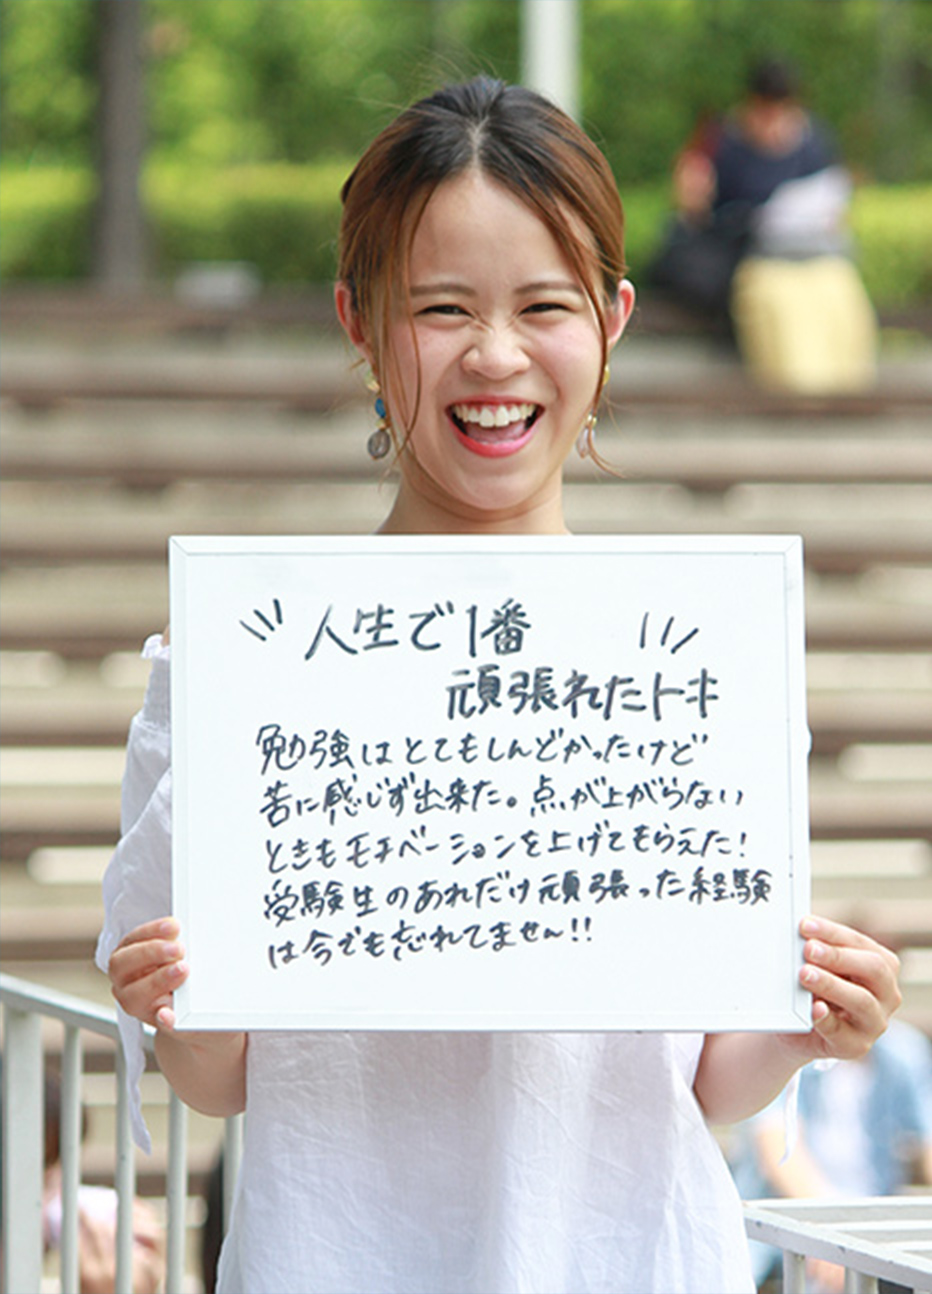 人生で1番
頑張れたトキ
勉強はとてもしんどかったけど
苦に感じず出来た。点が上がらない
ときもモチベーションを上げてもらえた!
受験生のあれだけ頑張った経験
は今でも忘れてません!!